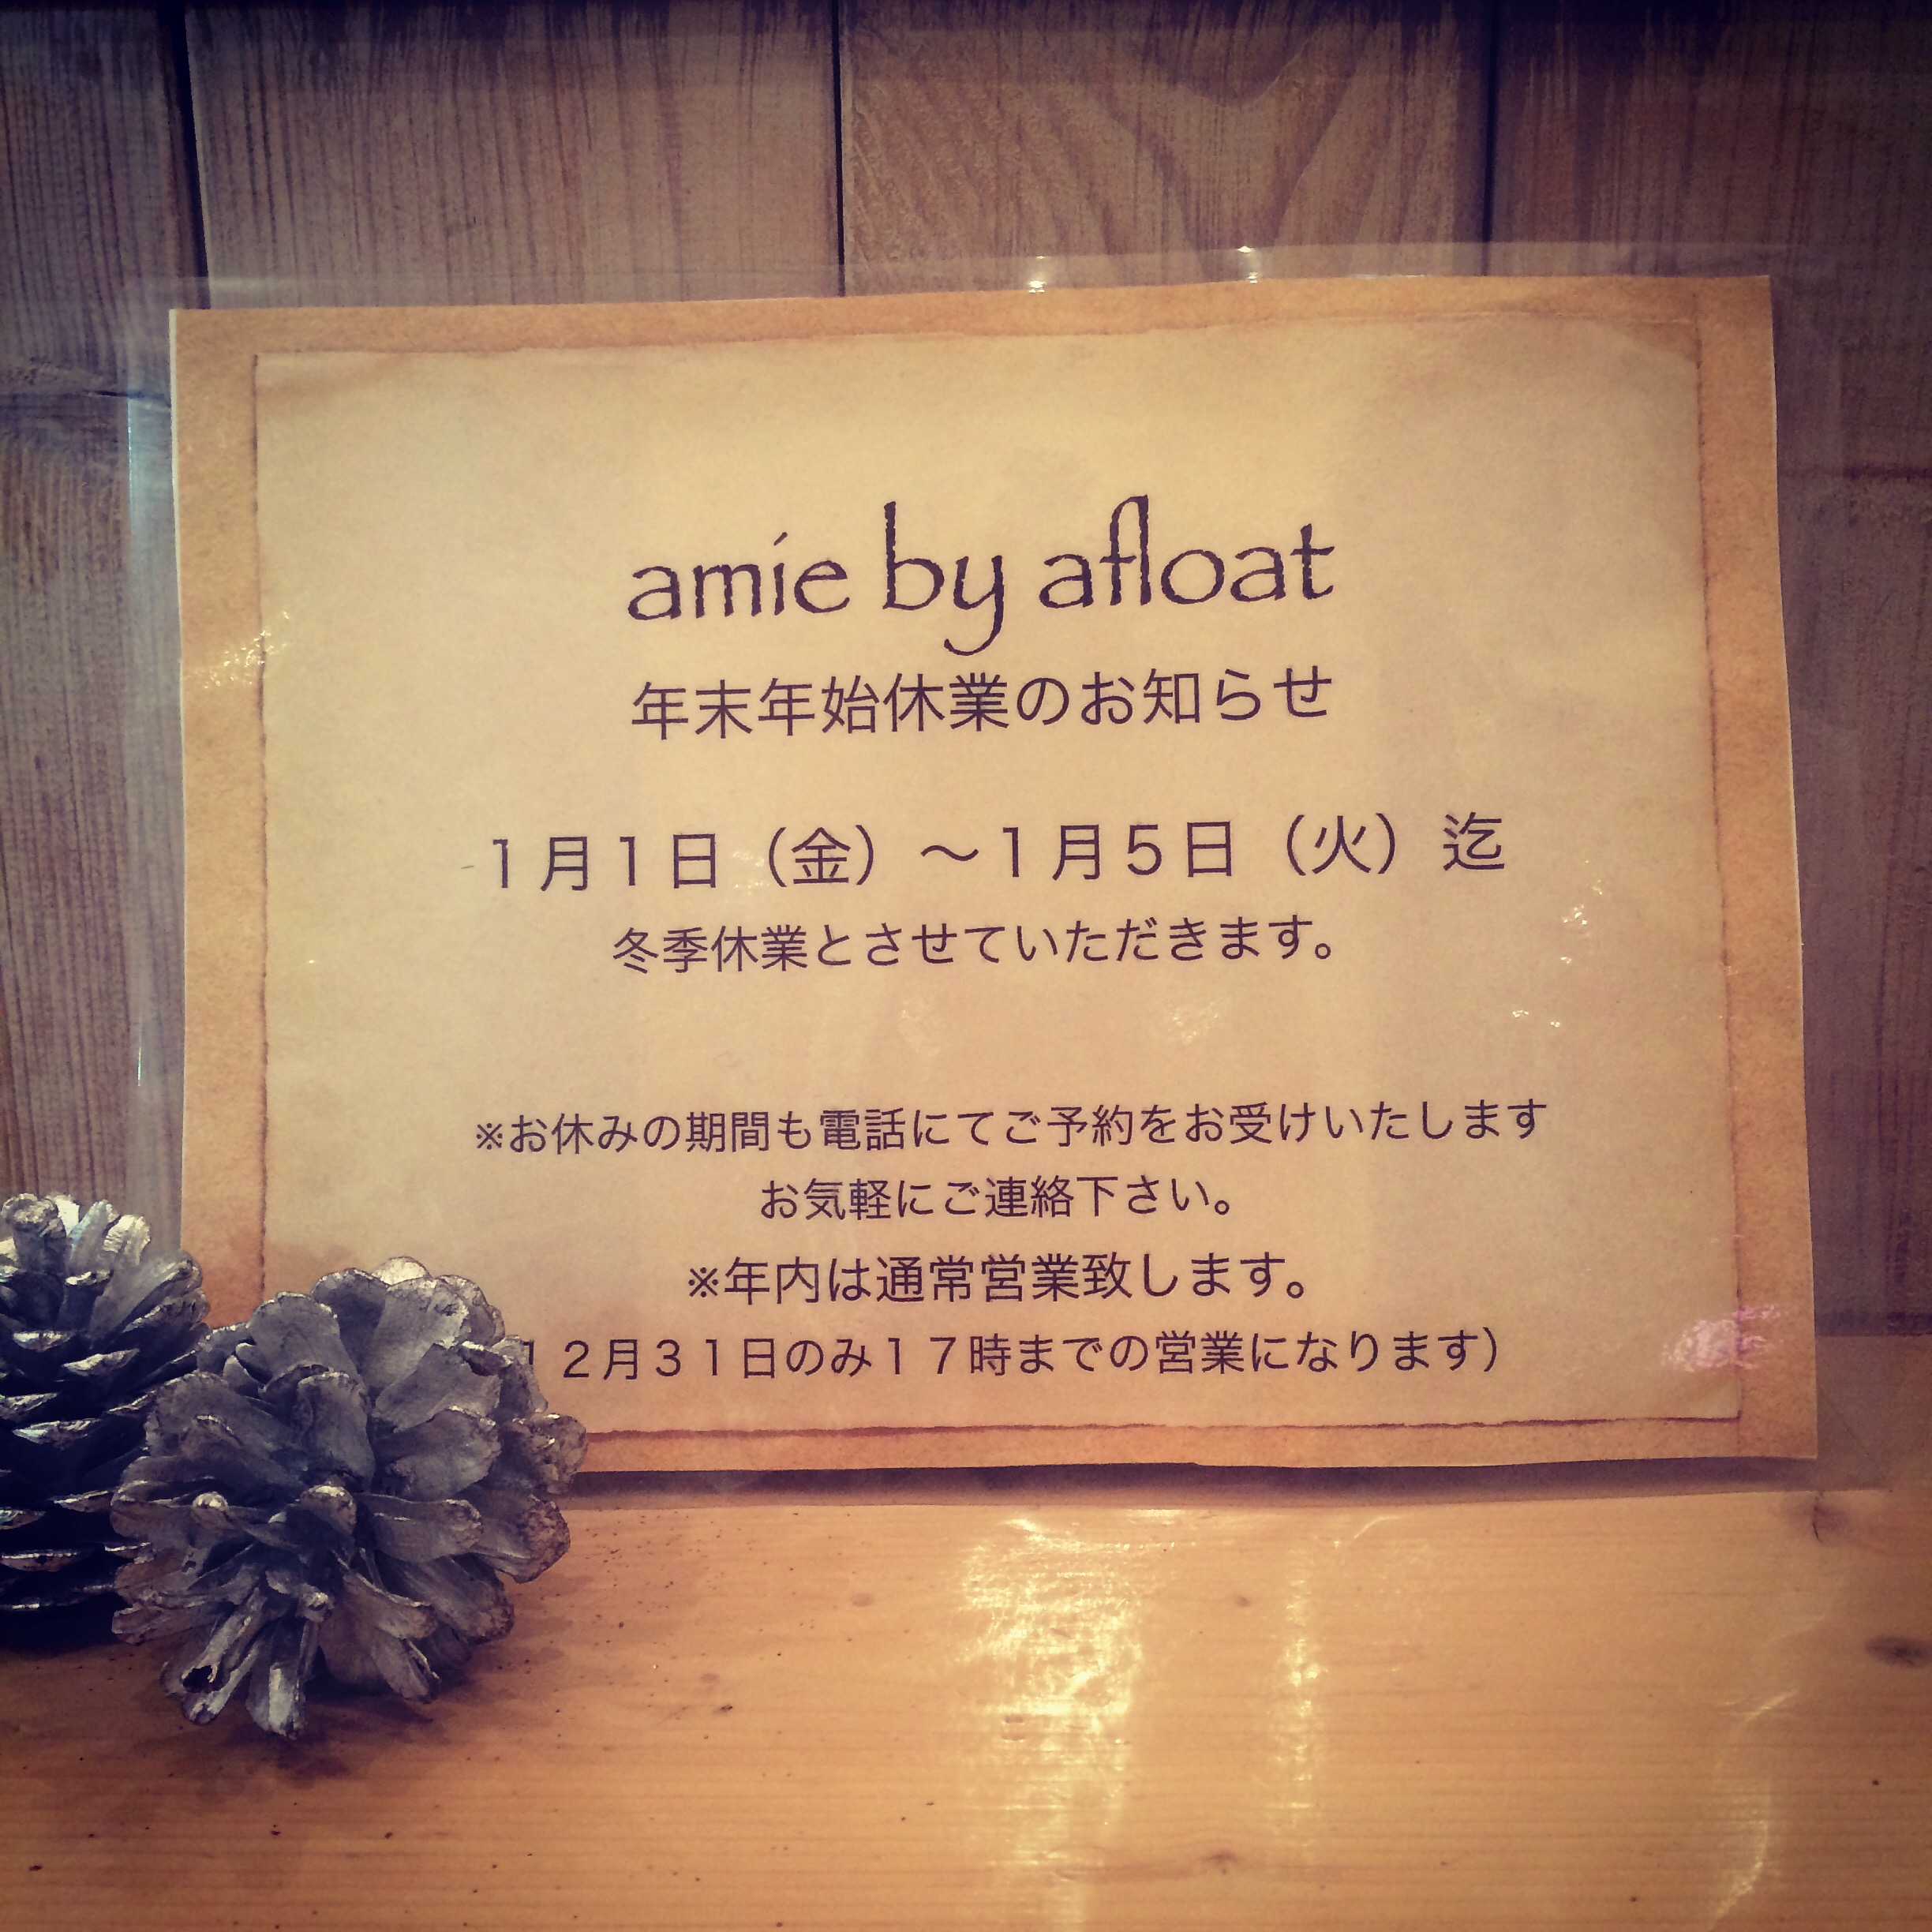 amie by afloat
年末年始休業のお知らせ
1月1日（金）〜1月5日（火）迄
冬季休業とさせていただきます。
※お休みの期間も電話にてご予約をお受けいたします
お気軽にご連絡下さい。
※年内は通常営業致します。
12月31日のみ17時までの営業になります）